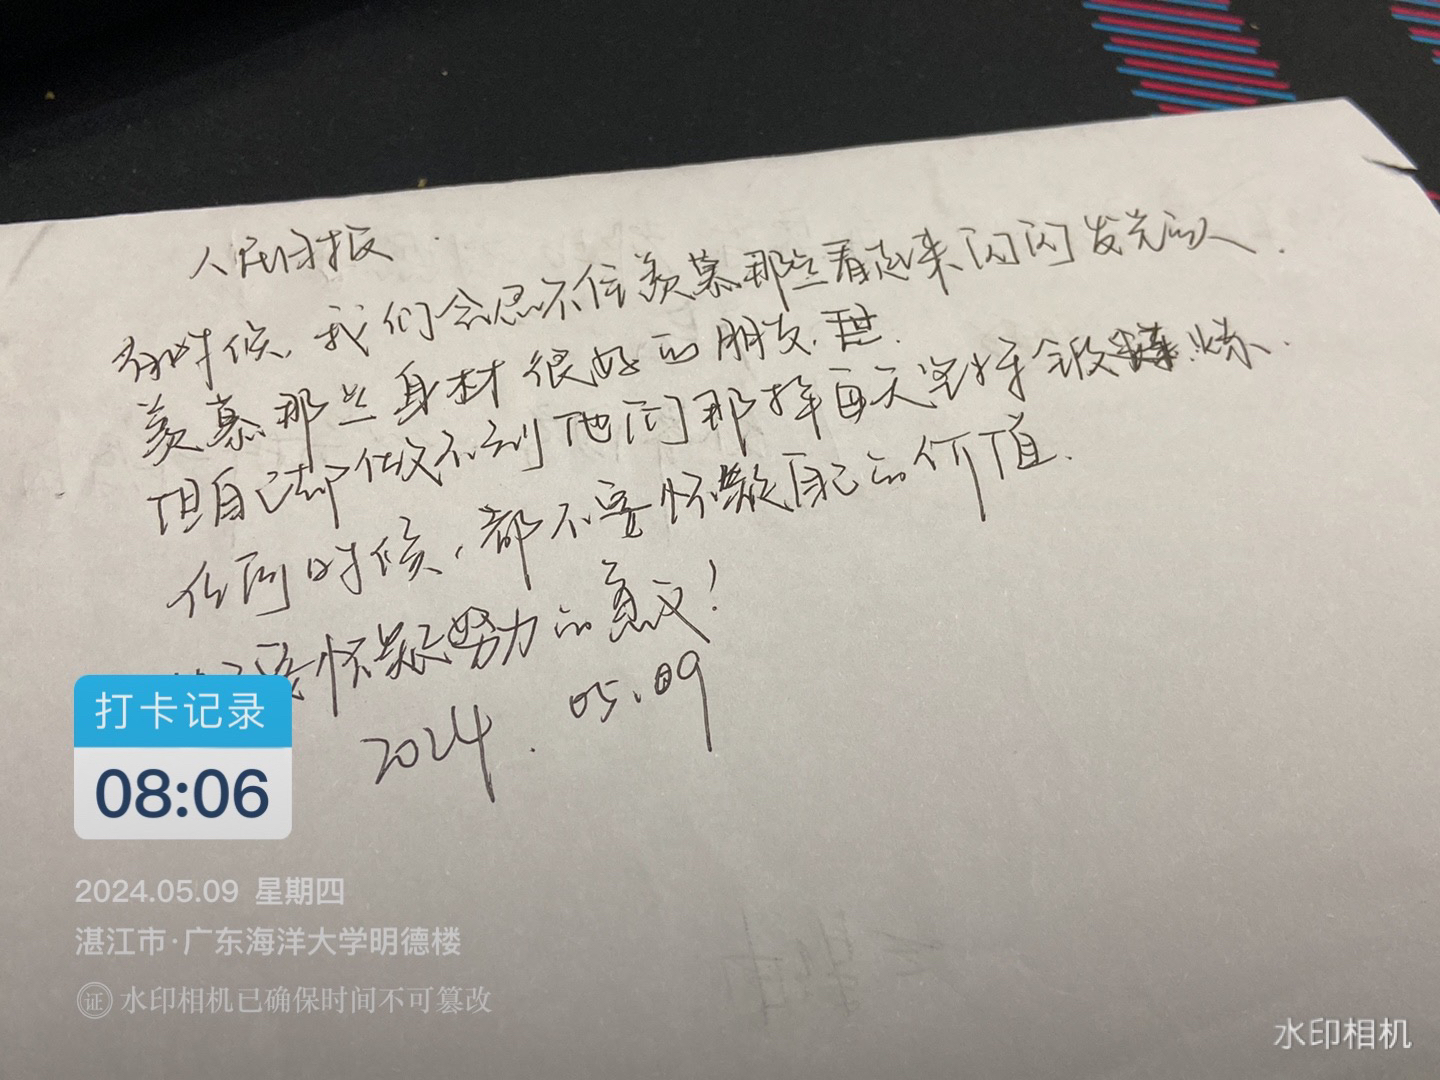 人民日报
有时候,我们会忍不住羡慕那些看起来闪闪发光的人.
羡慕那些身材很好的朋友.
但自己却做不到他们那样每天坚持锻炼.
任何时候,都不要怀疑自己的价值.
要怀疑努力的意义!
2024.05.09
打卡记录
08:06
2024.05.09 星期四
湛江市·广东海洋大学明德楼
证 水印相机已确保时间不可篡改
水印相机